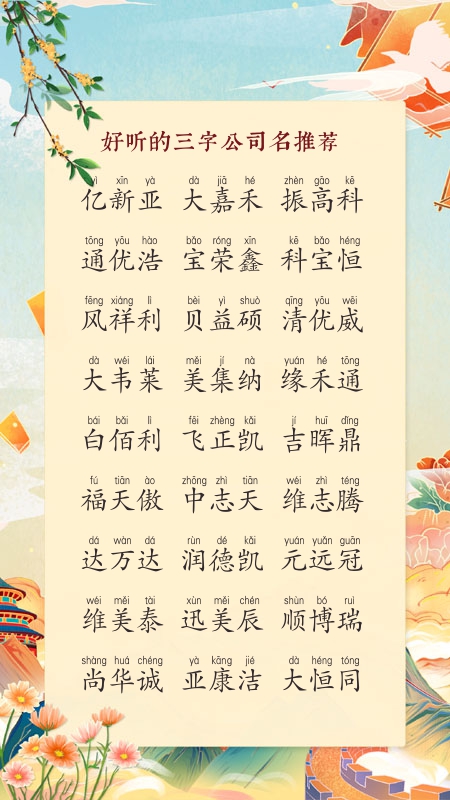 好听的三字公司名推荐
yì xīn yà dà jiā hé zhèn gāo kē
亿新亚 大嘉禾 振高科
tōng yōu hào bǎo róng xīn kē bǎo héng
通优浩 宝荣鑫 科宝恒
fēng xiáng lì bèi yì shuò qīng yōu wēi
风祥利 贝益硕 清优威
dà wéi lái měi jí nà yuán hé tōng
大韦莱 美集纳 缘禾通
bái bǎi lì fēi zhèng kǎi jí huī dǐng
白佰利 飞正凯 吉晖鼎
fú tiān ào zhōng zhì tiān wéi zhì téng
福天傲 中志天 维志腾
dá wàn dá rùn dé kǎi yuán yuǎn guān
达万达 润德凯 元远冠
wéi měi tài xùn měi chén shùn bó ruì
维美泰 迅美辰 顺博瑞
shàng huá chéng yà kāng jié dà héng tóng
尚华诚 亚康洁 大恒同